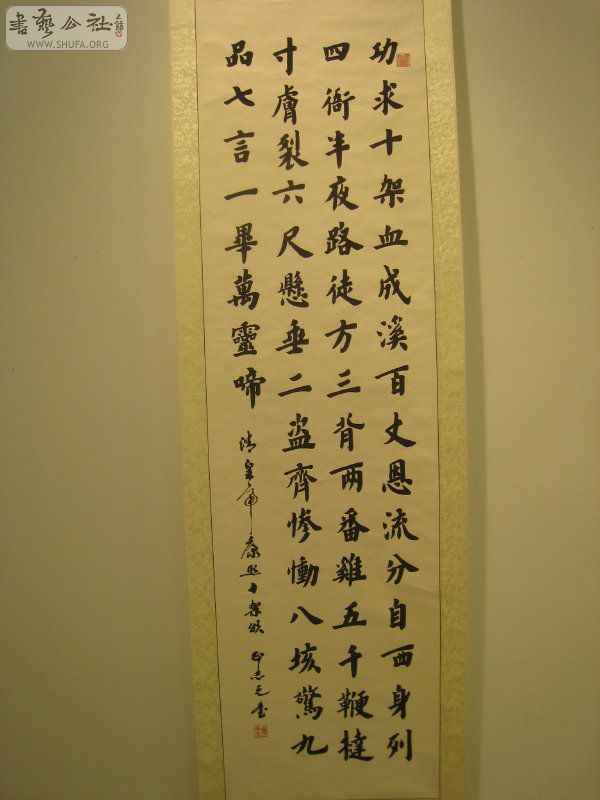 書藝公社
WWW.SHUFA.ORG
功求十架血成溪百丈恩流分自西身列
四衙半夜路徒方三背兩番雞五千鞭撻
寸膚裂六尺懸垂二盗齊惨慟八垓驚九
品七言一畢萬靈啼
清皇帝康熙十架頌 志書